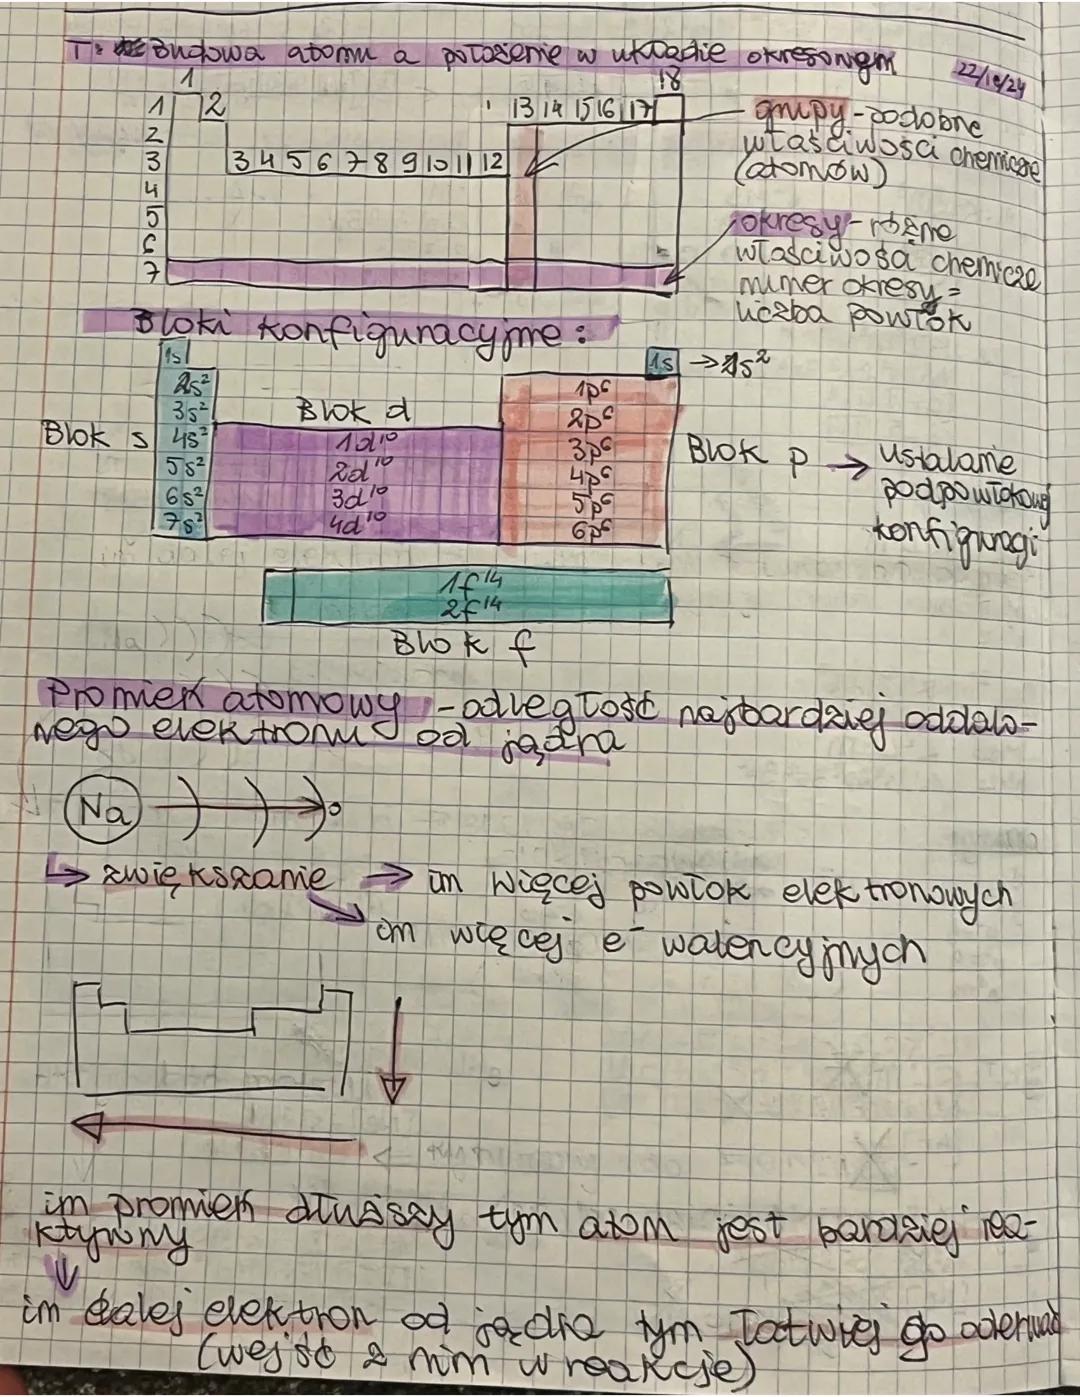 T: Budowa atomu a położenie w układzie okresowym
22/10/24
1 18
1 2 13 14 15 16 17
2
3 3 4 5 6 7 8 9 10 11 12
4
5
6
7
grupy - podobne
właściwości chemiczne
(atomów)
okresy - różne
właściwości chemicze
numer okresy =
liczba powłok
Bloki konfiguracyjne:
1s 1s → 1s²
2s² 1p⁶
3s² Blok d 2p⁶
Blok s 4s² 1d¹⁰ 3p⁶ Blok p → ustalanie
5s² 2d¹⁰ 4p⁶ podpowłokowej
6s² 3d¹⁰ 5p⁶ konfiguracji
7s² 4d¹⁰ 6p⁶
1f¹⁴
2f¹⁴
Blok f
Promień atomowy - odległość najbardziej oddalo-
nego elektronu od jądra
Na
↳ zwiększanie → im więcej powłok elektronowych
↘ im więcej e⁻ walencyjnych
im promień dłuższy tym atom jest bardziej rea-
ktywny
↓
im dalej elektron od jądra tym łatwiej go oderwać
(wejść z nim w reakcje)